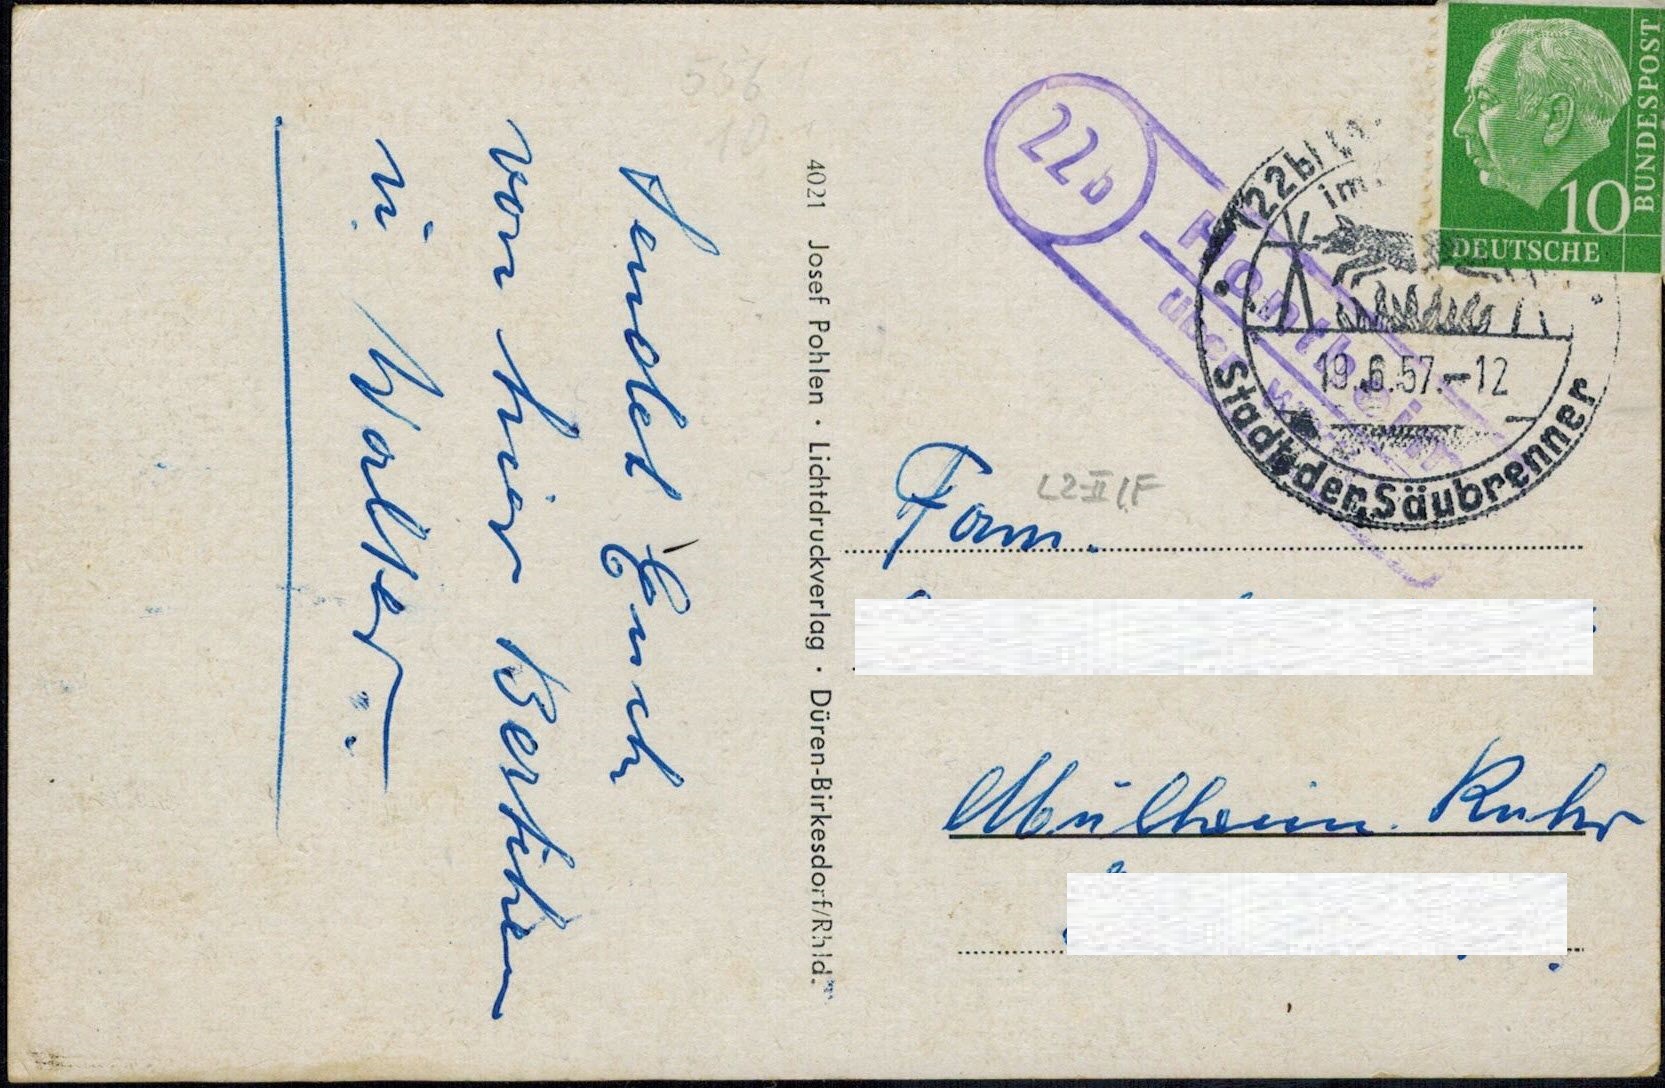 sendet Euch
von hier Bertchen
u. Walter.
4021 Josef Pohlen · Lichtdruckverlag · Düren-Birkesdorf/Rhld.
22b
Hontheim
über
(22b)
im
19.6.57.-12
Stadt der Säubrenner
10
DEUTSCHE
BUNDESPOST
Fam.
L2-II/F
Mülheim. Ruhr